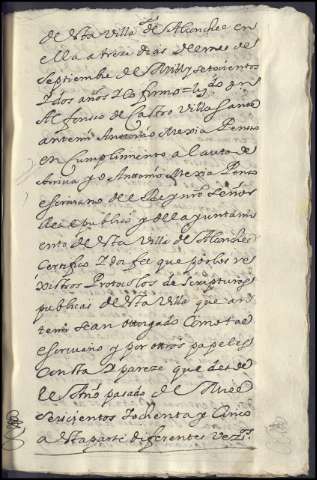 de esta Villa de Alconchel en
ella a treze dias del mes de
Septiembre de Mill y setecientos
y dos años y lo firmo = Lizdo Dn
Alfonso de Castro Villasante
antemi Antonio Mexia Penas
en Cumplimento al auto de
arriva yo Antonio Mexia Penas
escrivano del Rey nro Señor
del publico y del ayuntami
ento de esta Villa de Alconchel
Certifico I doi fee que por los re
xistros Protocolos de Scripturas
publicas de esta Villa que an
temi sean otorgado Como tal
escrivano y por otros papeles
Consta I pareze que desde
el Año pasado de Mill
Seiscientos I ochenta y Cinco
a esta parte diferentes vezs